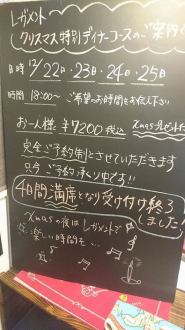 レガメント
クリスマス特別ディナーコースのご案内
日時 12/22日・23日・24日・25日
時間 18:00〜 ご希望のお時間をお伝え下さい
お一人様 ¥7200税込 Xmasプレゼント付
完全ご予約制とさせていただきます
只今ご予約承り中です!!
4日間満席となり受け付け終了しました!
Xmasの夜はレガメントで
楽しい時間を…